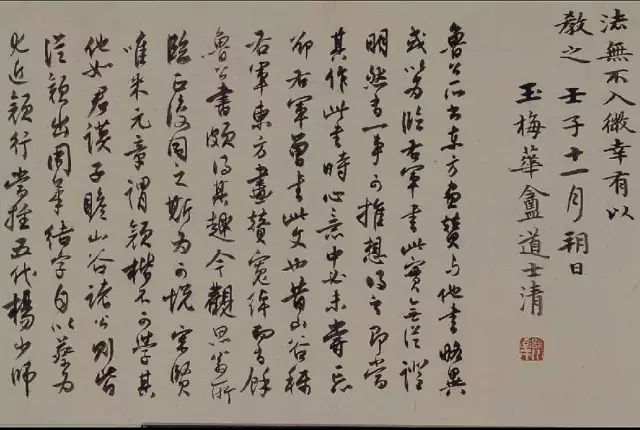 法無不入微幸有以
教之 壬子十一月朔日
玉梅華盦道士清
魯公所書東方畫贊與他書略異
或以為臨右軍書此實無從證
明然有一事可推想得之即當
其作此書時心意中必未嘗忘
卻右軍曾書此文也昔山谷稱
右軍東方畫贊寬綽有餘
魯公書頗得其趣今觀思翁所
臨正復同之斯為可悅宋賢
唯米元章謂顏楷不可學其
他如君謨子瞻山谷諸公則皆
從顏出結字自以蔡為
近顏行當推五代楊少師